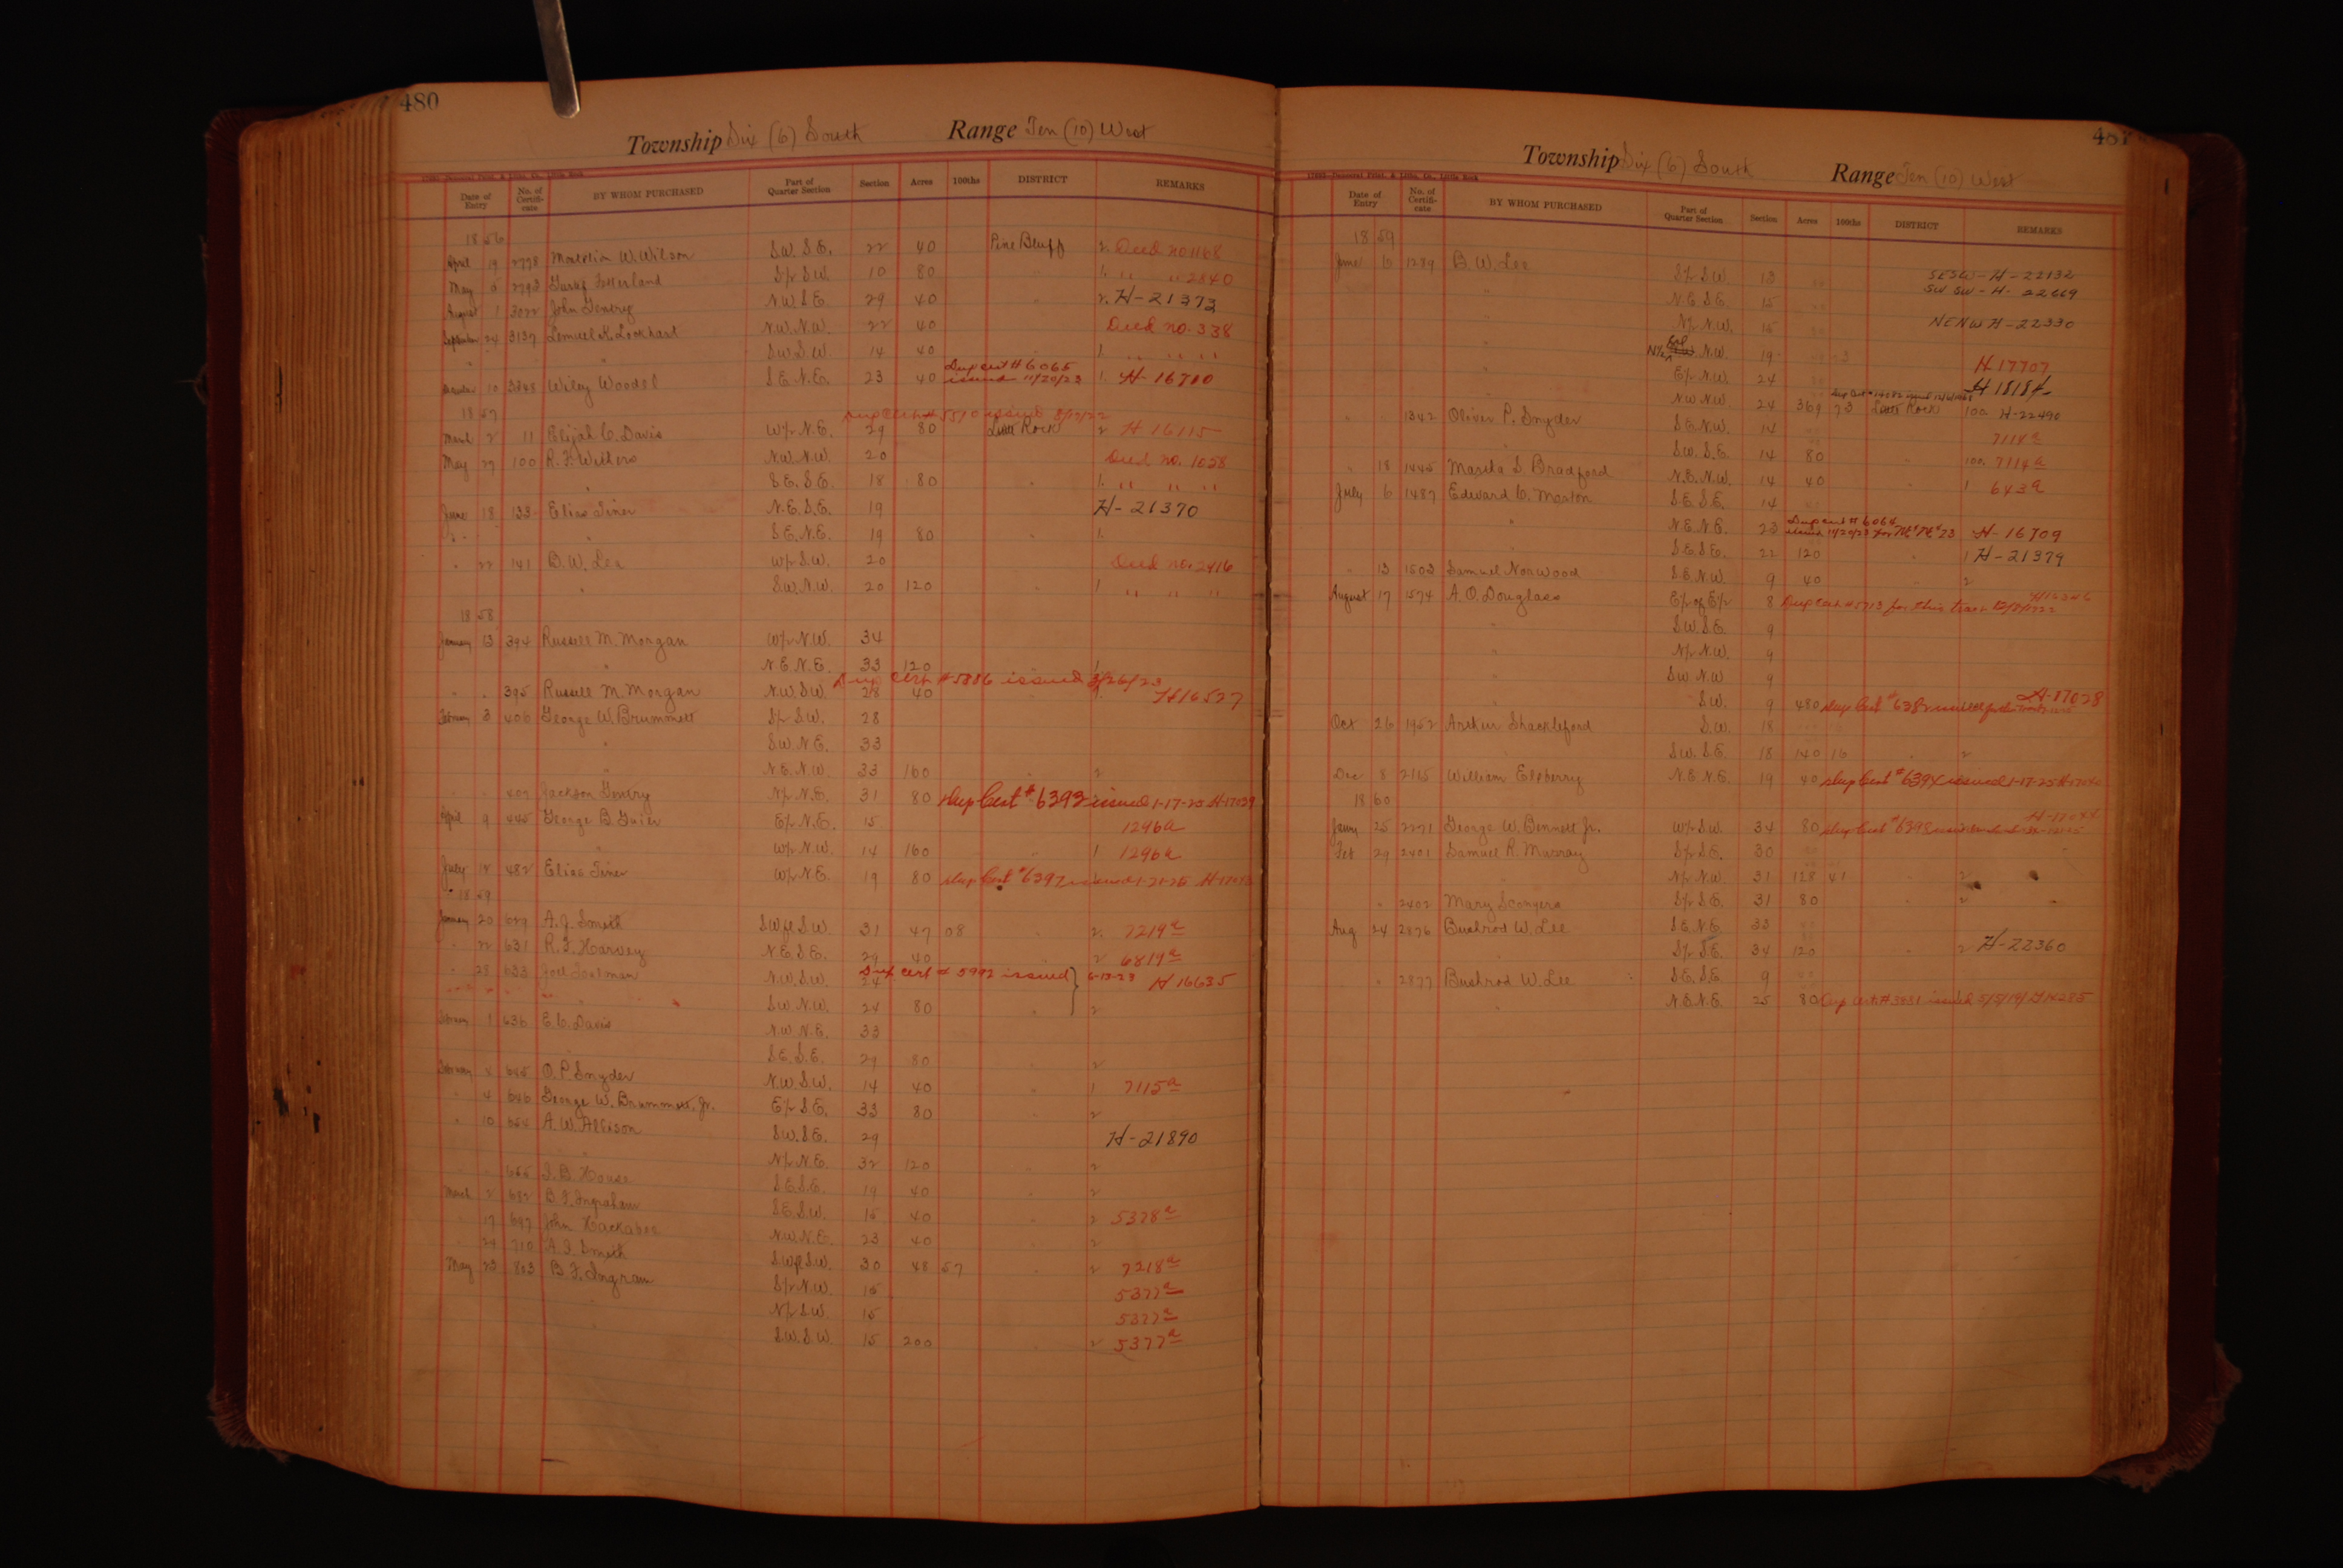 480
Township Six (6) South Range Ten (10) West
Date of Entry No. of Certifi-cate BY WHOM PURCHASED Part of Quarter Section Section Acres 100ths DISTRICT REMARKS
1856
April 19 2778 W. Wilson S.W. S.E. 22 40 Pine Bluff 2. Deed no 1168
May 2793 S½ S.W. 10 80 " 1. " " 2840
August 1 3022 John Gentry N.W. S.E. 29 40 " 2. H-21373
September 24 3137 Lemuel K. Lockhart N.W. N.W. 22 40 Deed no. 338
" " S.W. S.W. 14 40 1. " " "
Dup cert # 6065
December 10 3348 Wiley Woodsl S.E. N.E. 23 40 issued 11/20/23 1. H-16710
1857 Dup Cert # 5510 issued 8/12/22
March 2 11 Elijah C. Davis W½ N.E. 29 80 Little Rock 2 H 16115
May 27 100 R. F. Withers N.W. N.W. 20 Deed no. 1028
" S.E. S.E. 18 80 " 1. " " "
June 18 133 Elias Siner N.E. S.E. 19 H-21370
" " S.E. N.E. 19 80 " 1.
" 22 141 B. W. Lee W½ S.W. 20 Deed no. 2416
" S.W. N.W. 20 120 " 1 " " "
1858
January 13 394 Russell M. Morgan W½ N.W. 34
" N.E. N.E. 33 120 1
Dup Cert #5886 issued 3/26/23
" " 395 Russell M. Morgan N.W. S.W. 28 40 1. H16527
February 3 406 George W. Brummett S½ S.W. 28
" S.W. N.E. 33
" N.E. N.W. 33 160 " 2
" " 407 Jackson Gentry N½ N.E. 31 80 Dup Cert #6393 issued 1-17-25 H-17039
April 9 445 George B. E½ N.E. 15 1296a
" W½ N.W. 14 160 " 1 1296a
July 12 482 Elias Siner W½ N.E. 19 80 Dup Cert #6397 issued 1-21-25
1859
January 20 629 A. J. Smith SWfl S.W. 31 47 08 " 2. 7219a
" 22 631 R. F. Harvey N.E. S.E. 29 40 2 6819a
" 28 633 Joel N.W. S.W. 24 Dup cert # 5992 issued 6-13-23 H 16635
" S.W. N.W. 24 80 2
February 1 636 E. C. Davis N.W. N.E. 33
" S.E. S.E. 29 80 " 2
February 645 O. P. Snyder N.W. S.W. 14 40 1 7115a
" 4 646 George W. Brummett, Jr. E½ S.E. 33 80 " 2
" 10 654 A. W. Allison S.W. S.E. 29 H-21890
" N½ N.E. 32 120 " 2
" " 655 J. B. House S.E. S.E. 19 40 " 2
March 2 682 B. F. Ingraham S.E. S.W. 15 40 " 2 5378a
" 17 697 John Hackabee N.W. N.E. 23 40 2
" 24 710 A. J. Smith SWfl S.W. 30 48 57 " 2 7218a
May 23 803 B. F. Ingram S½ N.W. 15 5377a
" N½ S.W. 15 5377a
" S.W. S.W. 15 200 " 2 5377a
481
Township Six (6) South Range Ten (10) West
Date of Entry No. of Certifi-cate BY WHOM PURCHASED Part of Quarter Section Section Acres 100ths DISTRICT REMARKS
1859
June 6 1289 B. W. Lee S½ S.W. 13 SESW-H-22132
SW SW-H-22669
" N.E. S.E. 15
" N½ N.W. 15 NENW H-22330
" N½ N.W. 19 H 17707
" E½ N.W. 24 H 18184
N.W. N.W. 24 369 73 Little Rock 100 H-22490
" " 1342 Oliver P. Snyder S.E. N.W. 14 7114a
" S.W. S.E. 14 80 " 100. 7114a
" 18 1445 Marsha S. Bradford N.E. N.W. 14 40 " 1 643a
July 6 1487 Edward C. Morton S.E. S.E. 14
Dup cert # 6064
" N.E. N.E. 23 issued 11/20/23 for NE NE 23 H-16709
" S.E. S.E. 22 120 " 1 H-21379
" 13 1503 Samuel Norwood S.E. N.W. 9 40 " 2
August 17 1574 A. O. Douglass E½ of E½ 8 Dup cert #5713 for this tract
" S.W. S.E. 9
" N½ N.W. 9
" S.W. N.W. 9
" S.W. 9 480 Dup Cert #6382 H-17028
Oct 26 1952 Arthur Shackleford S.W. 18
" S.W. S.E. 18 140 16 " 2
Dec 8 2115 William Elsberry N.E. N.E. 19 40 Dup Cert #6394 issued 1-17-25 H-17040
1860
Jany 25 2271 George W. Bennett Jr. W½ S.W. 34 80 Dup Cert #6398
Feb 29 2401 Samuel R. Murray S½ S.E. 30
" N½ N.W. 31 128 41 " 2
" 2402 Mary Sconyers S½ S.E. 31 80 " 2
Aug 24 2876 Bushrod W. Lee S.E. N.E. 33
" S½ S.E. 34 120 " 2 H-22360
" 2877 Bushrod W. Lee S.E. S.E. 9
" N.E. N.E. 25 80 Dup cert.#3631 issued 5/3/19/ H14285